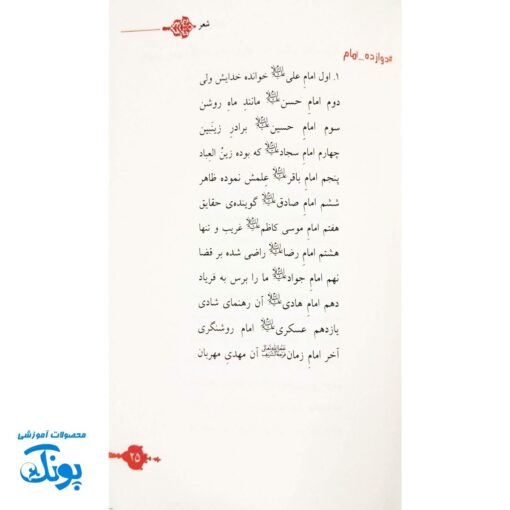 شعر
#دوازده_امام
۱. اول امامِ علی علیه‌السلام خوانده خدایش ولی
دوم امامِ حسن علیه‌السلام مانندِ ماهِ روشن
سوم امامِ حسین علیه‌السلام برادرِ زینَبین
چهارم امامِ سجاد علیه‌السلام که بوده زینُ العباد
پنجم امامِ باقر علیه‌السلام عِلمش نموده ظاهر
ششم امامِ صادق علیه‌السلام گوینده‌ی حقایق
هفتم امامِ موسی کاظم علیه‌السلام غریب و تنها
هشتم امامِ رضا علیه‌السلام راضی شده بر قضا
نهم امامِ جواد علیه‌السلام ما را برس به فریاد
دهم امامِ هادی علیه‌السلام آن رهنمای شادی
یازدهم عسکری علیه‌السلام امام روشنگری
آخر امامِ زمان آن مهدیِ مهربان
محصولات آموزشی
پونک
۲۵